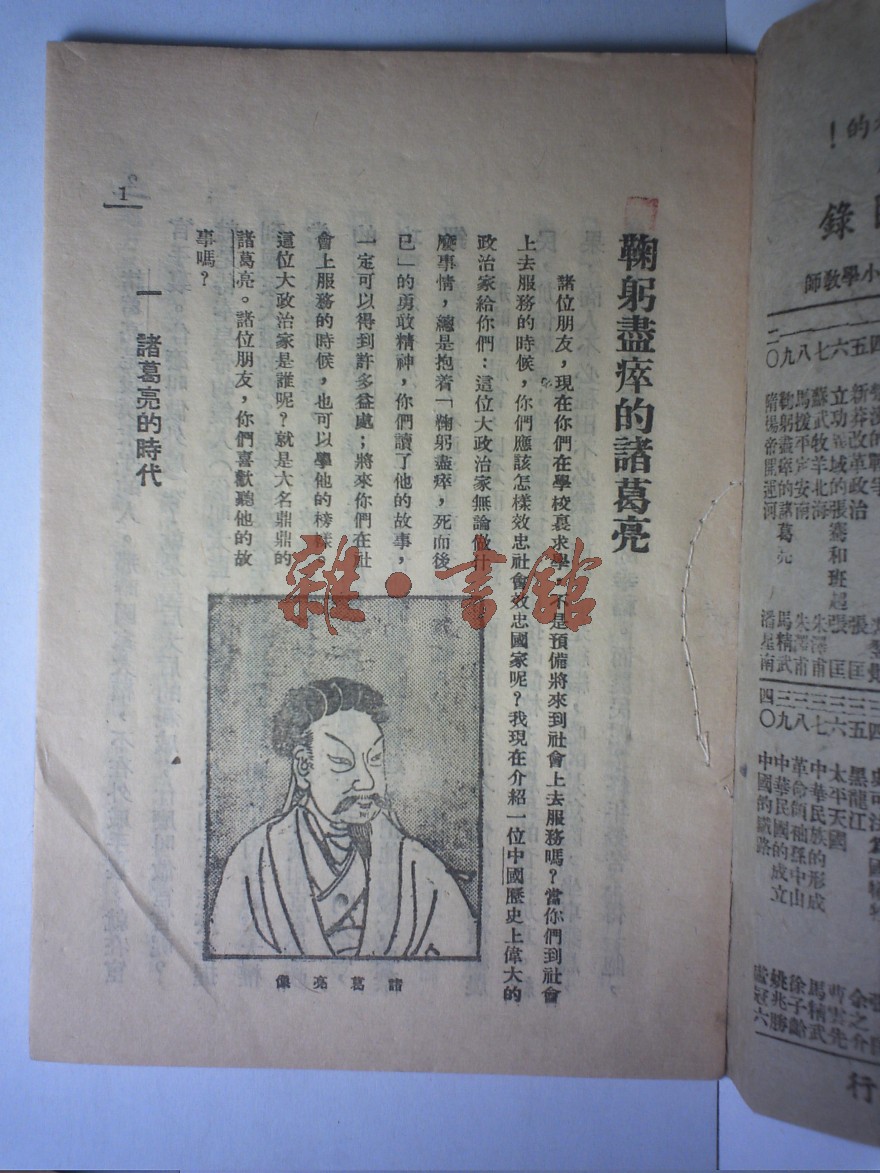 鞠躬盡瘁的諸葛亮
諸位朋友，現在你們在學校裏求學，不是預備將來到社會上去服務嗎？當你們到社會
上去服務的時候，你們應該怎樣效忠社會效忠國家呢？我現在介紹一位中國歷史上偉大的
政治家給你們：這位大政治家無論做什
麼事情，總是抱着「鞠躬盡瘁，死而後
已」的勇敢精神，你們讀了他的故事，
一定可以得到許多益處；將來你們在社
會上服務的時候，也可以學他的榜樣。
這位大政治家是誰呢？就是大名鼎鼎的
諸葛亮。諸位朋友，你們喜歡聽他的故
事嗎？
諸葛亮像
一 諸葛亮的時代
1
雜·書館
的！
錄
小學教師
四
五 新莽改革政治
六 立功異域的張騫和班超 張匡
七 蘇武牧羊北海 朱澤甫
八 馬援平定安南 朱澤甫
九 鞠躬盡瘁的諸葛亮 馬精武
二〇 隋煬帝開運河 潘星南
四
五 黑龍江
六 太平天國 余之介
七 中華民族的形成 曹雲先
八 革命領袖孫中山 馬精武
九 中華民國的成立 徐子齡
四〇 中國的鐵路 姚兆勝
盧冠六
行